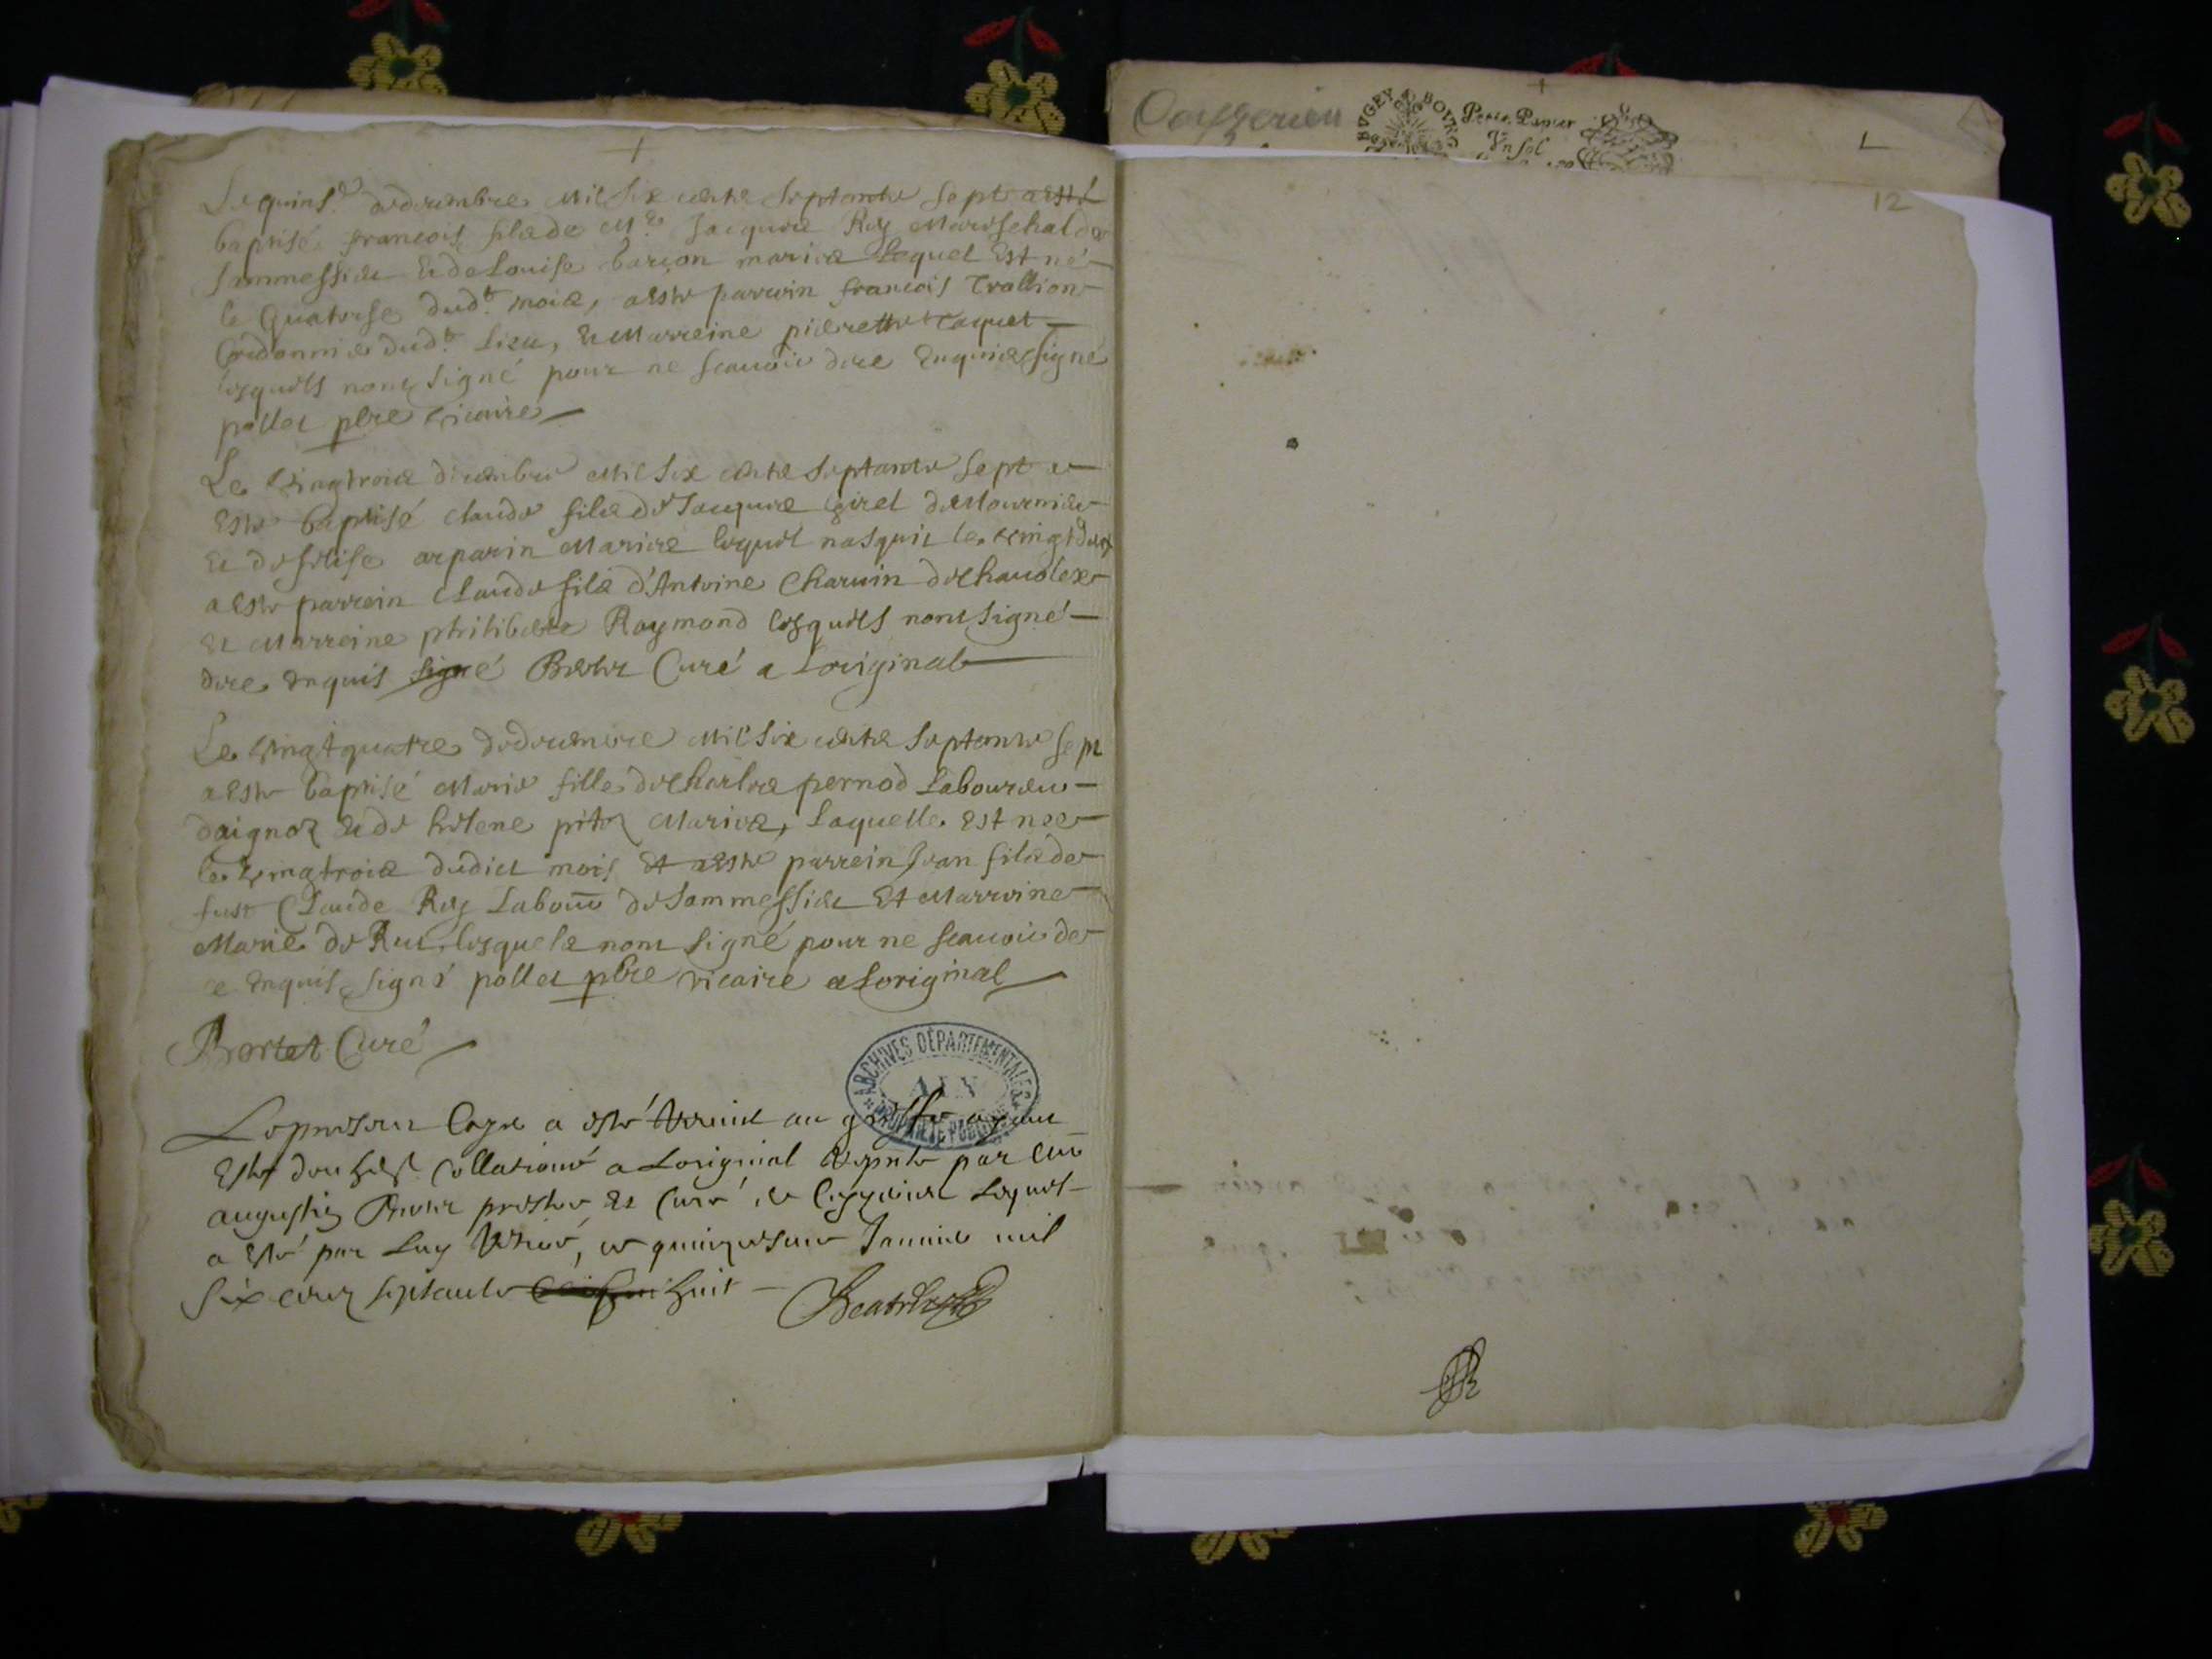 Le quins.e dedecembre Mil Six cents Septante Sept a esté
baptisé francois fils de M.e Jacques Roy Mareschal de
Sammessieu & de Louise barçon mariés Lequel Est né
le Quatorse dud.t mois, a esté parrein francois Trollion
Cordonnié dud.t Lieu, & Marreine pierrette Caquet
lesquels nont signé pour ne scauoir dere enquis signé
pollet pbre vicaire
Le vingtrois decembre Mil Six cents Septante Sept a
Esté baptisé claude fils de Jacques giret de
Et de arparin Mariés lequel nasquit le vingtdeux
a Esté parrein Claude fils d'Antoine Charuin de
Et Marreine philiberte Raymond lesquels nont signé
dere enquis signé Curé a Loriginal
Le vingtquatre dedecembre Mil Six cents Septante Sept
a Esté baptisé Marie fille de Charles pernod Laboureur
daignoz & de helene pitoz Mariés, Laquelle est nee
le vingtrois dudict mois Et a Esté parrein Jean fils de
fust Claude Roy Labour de Sammessieu Et Marreine
Marie de Rue, lesquels nont signé pour ne scauoir de
re enquis signé pollet pbre vicaire a Loriginal
Bortet Curé
ARCHIVES DÉPARTEMENTALES
AIN
PROPRIÉTÉ PUBLIQUE
Le present Copie a esté au greffe ayant
Esté collationé a Loriginal par
augustin prestre & Curé de Lequel
a esté par Luy retiré, ce quinziesme Januier mil
Six cens septante huit
BVGEY BOVRG
Petit Papier
Vn sol
L
12